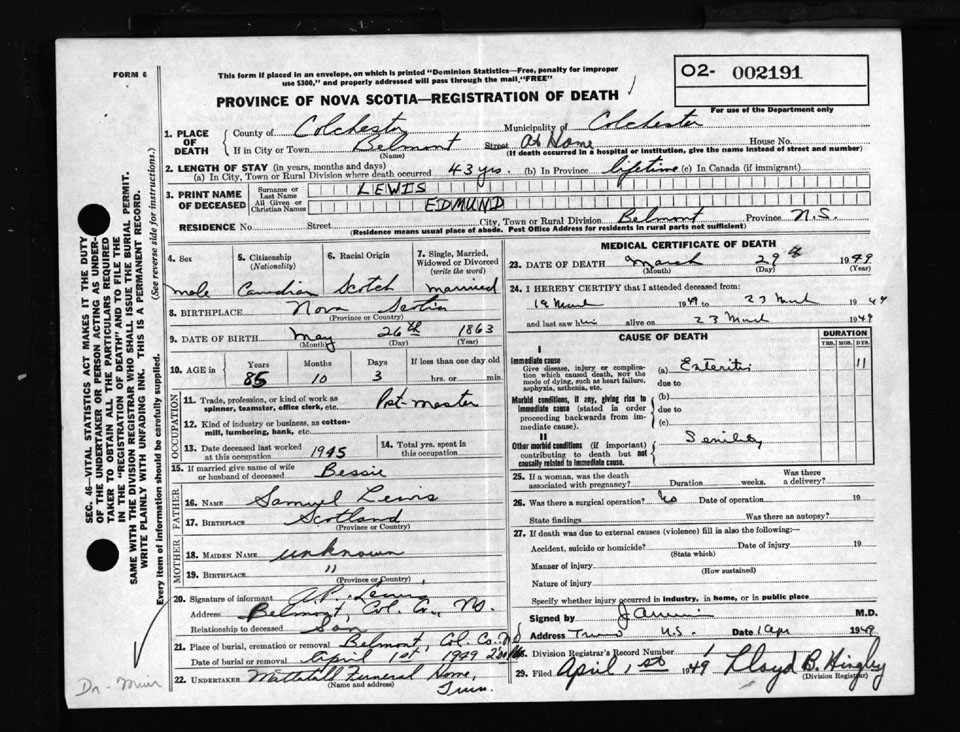 FORM 6
This form if placed in an envelope, on which is printed "Dominion Statistics—Free, penalty for improper
use $300," and properly addressed will pass through the mail, "FREE"
O2- 002191
For use of the Department only
PROVINCE OF NOVA SCOTIA—REGISTRATION OF DEATH
1. PLACE OF DEATH
County of Colchester Municipality of Colchester
If in City or Town Belmont Street At Home House No.
(Name) (If death occurred in a hospital or institution, give the name instead of street and number)
2. LENGTH OF STAY (in years, months and days)
(a) In City, Town or Rural Division where death occurred 43 yrs. (b) In Province lifetime (c) In Canada (if immigrant)
3. PRINT NAME OF DECEASED
Surname or Last Name LEWIS
All Given or Christian Names EDMUND
RESIDENCE No. Street City, Town or Rural Division Belmont Province N.S.
(Residence means usual place of abode. Post Office Address for residents in rural parts not sufficient)
4. Sex
male
5. Citizenship
(Nationality)
Canadian
6. Racial Origin
Scotch
7. Single, Married,
Widowed or Divorced
(write the word)
married
8. BIRTHPLACE Nova Scotia
(Province or Country)
9. DATE OF BIRTH May 26th 1863
(Month) (Day) (Year)
10. AGE in
Years Months Days If less than one day old
85 10 3 hrs. or min.
OCCUPATION
11. Trade, profession, or kind of work as
spinner, teamster, office clerk, etc. Post-master
12. Kind of industry or business, as cotton-
mill, lumbering, bank, etc.
13. Date deceased last worked
at this occupation 1945
14. Total yrs. spent in
this occupation
15. If married give name of wife
or husband of deceased Bessie
FATHER
16. NAME Samuel Lewis
17. BIRTHPLACE Scotland
(Province or Country)
MOTHER
18. MAIDEN NAME unknown
19. BIRTHPLACE "
(Province or Country)
20. Signature of informant A.P. Lewis
Address Belmont, Col. Co., N.S.
Relationship to deceased Son
21. Place of burial, cremation or removal Belmont, Col. Co. N.S
Date of burial or removal April 1st 1949
22. UNDERTAKER Mattatall Funeral Home,
(Name and address) Truro.
MEDICAL CERTIFICATE OF DEATH
23. DATE OF DEATH March 29th 1949
(Month) (Day) (Year)
24. I HEREBY CERTIFY that I attended deceased from:
19 March 1949 to 23 March 1949
and last saw him alive on 23 March 1949
CAUSE OF DEATH
DURATION
YRS. MOS. DYS.
I
Immediate cause
Give disease, injury or complica-
tion which caused death, NOT the
mode of dying, such as heart failure,
asphyxia, asthenia, etc.
(a) Enteritis 11
due to
Morbid conditions, if any, giving rise to
immediate cause (stated in order
proceeding backwards from im-
mediate cause).
(b)
due to
(c)
II
Other morbid conditions (if important)
contributing to death but not
causally related to immediate cause.
Senility
25. If a woman, was the death
associated with pregnancy? Duration weeks. Was there
a delivery?
26. Was there a surgical operation? No Date of operation 19
State findings Was there an autopsy?
27. If death was due to external causes (violence) fill in also the following:—
Accident, suicide or homicide? Date of injury 19
(State which)
Manner of injury
(How sustained)
Nature of injury
Specify whether injury occurred in industry, in home, or in public place
Signed by M.D.
Address Truro N.S. Date 1 Apr 1949
28. Division Registrar's Record Number 1
29. Filed April 1st 1949 Lloyd B. Hingley
(Division Registrar)
SEC. 46—VITAL STATISTICS ACT MAKES IT THE DUTY
OF THE UNDERTAKER OR PERSON ACTING AS UNDER-
TAKER TO OBTAIN ALL THE PARTICULARS REQUIRED
IN THE "REGISTRATION OF DEATH" AND TO FILE THE
SAME WITH THE DIVISION REGISTRAR WHO SHALL ISSUE THE BURIAL PERMIT.
WRITE PLAINLY WITH UNFADING INK. THIS IS A PERMANENT RECORD.
Every item of information should be carefully supplied. (See reverse side for instructions.)
Dr - Muir